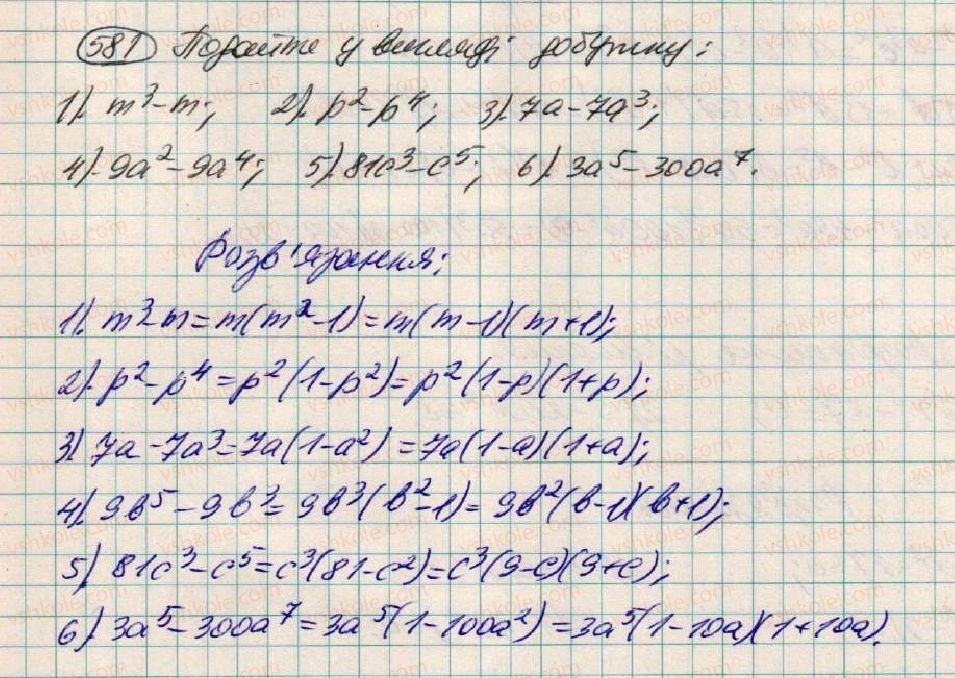 581 Подайте у вигляді добутку:
1). m³-m; 2). p²-p⁴; 3). 7a-7a³;
4). 9a²-9a⁴; 5). 81c³-c⁵; 6). 3a⁵-300a⁷.
Розв'язання:
1). m³-m=m(m²-1)=m(m-1)(m+1);
2). p²-p⁴=p²(1-p²)=p²(1-p)(1+p);
3) 7a-7a³=7a(1-a²)=7a(1-a)(1+a);
4) 9b⁵-9b³=9b³(b²-1)=9b²(b-1)(b+1);
5) 81c³-c⁵=c³(81-c²)=c³(9-c)(9+c);
6) 3a⁵-300a⁷=3a⁵(1-100a²)=3a⁵(1-10a)(1+10a).